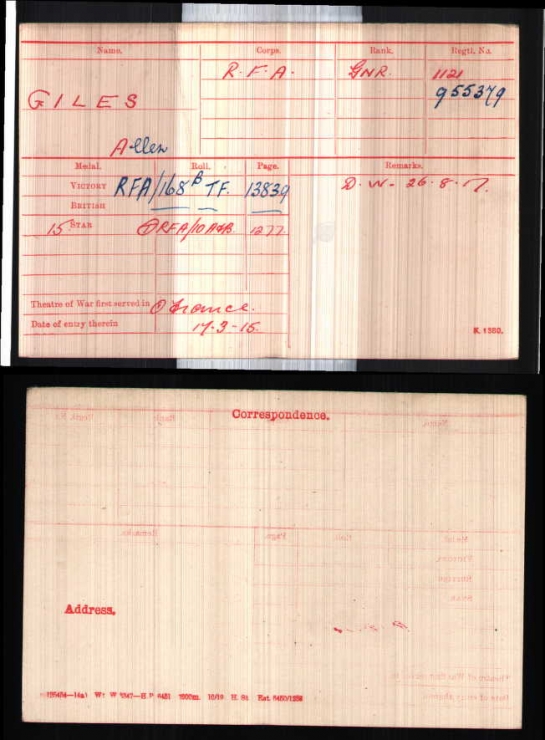 Name. Corps. Rank. Regtl. No.
R.F.A. GNR. 1121
GILES 955379
Allen
Medal. Roll. Page. Remarks.
VICTORY RFA/168B TF. 13839 D.W. 26.8.17.
BRITISH
15 STAR RFA/10A&B 1277
Theatre of War first served in France.
Date of entry therein 17-3-15.
K 1380.
Correspondence.
Address.
10/19 H. St.